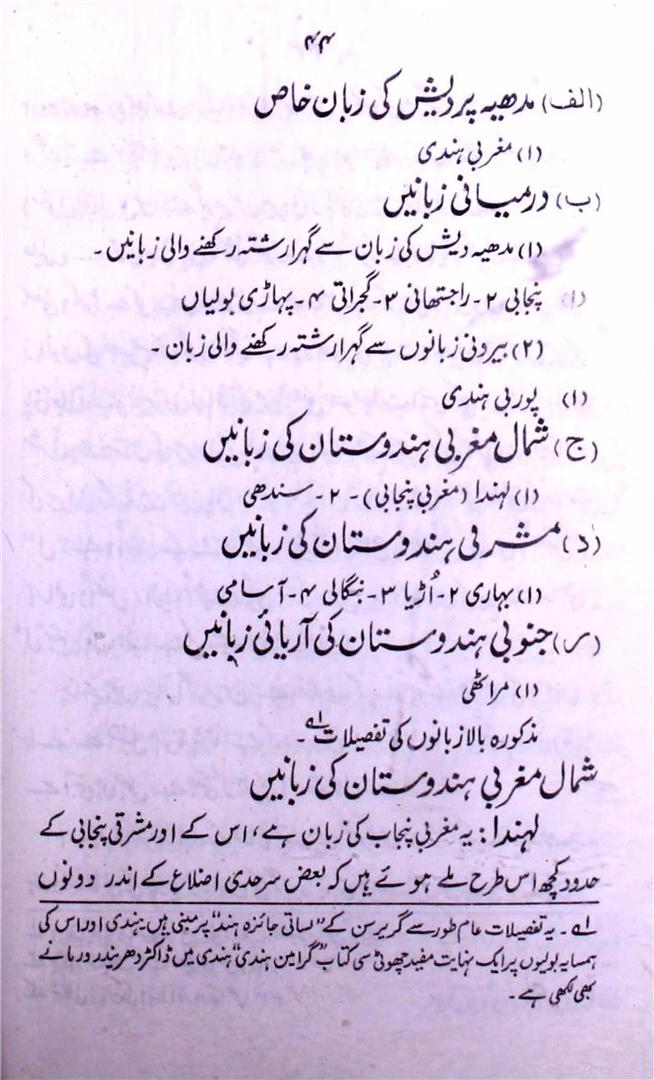 ۴۴
(الف) مدھیہ پردیش کی زبان خاص
(۱) مغربی ہندی
(ب) درمیانی زبانیں
(۱) مدھیہ دیش کی زبان سے گہرا رشتہ رکھنے والی زبانیں۔
(۱) پنجابی ۲۔ راجستھانی ۳۔ گجراتی ۴۔ پہاڑی بولیاں
(۲) بیرونی زبانوں سے گہرا رشتہ رکھنے والی زبان۔
(۱) پوربی ہندی
(ج) شمال مغربی ہندوستان کی زبانیں
(۱) لہندا (مغربی پنجابی)۔ ۲۔ سندھی
(د) مشرقی ہندوستان کی زبانیں
(۱) بہاری ۲۔ اُڑیا ۳۔ بنگالی ۴۔ آسامی
(ر) جنوبی ہندوستان کی آریائی زبانیں
(۱) مراٹھی
مذکورہ بالا زبانوں کی تفصیلات ۱؎۔
شمال مغربی ہندوستان کی زبانیں
لہندا: یہ مغربی پنجاب کی زبان ہے، اس کے اور مشرقی پنجابی کے
حدود کچھ اس طرح ملے ہوئے ہیں کہ بعض سرحدی اضلاع کے اندر دونوں
۱؎۔ یہ تفصیلات عام طور سے گریرسن کے "لسانی جائزہ ہند" پر مبنی ہیں۔ ہندی اور اس کی
ہمسایہ بولیوں پر ایک نہایت مفید چھوٹی سی کتاب "گرامین ہندی" ہندی میں ڈاکٹر دھریندر ورما نے
بھی لکھی ہے۔